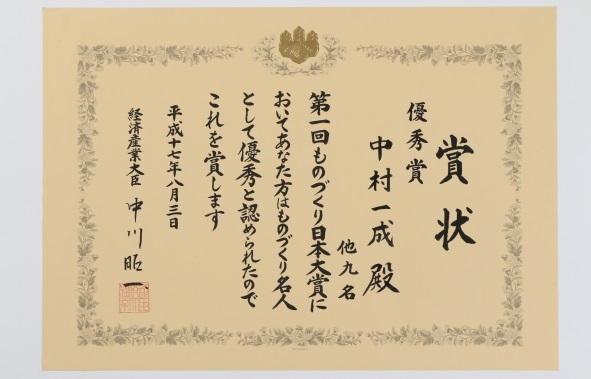 賞状
優秀賞
中村一成殿
他九名
第一回ものづくり日本大賞に
おいてあなた方はものづくり名人
として優秀と認められたので
これを賞します
平成十七年八月三日
経済産業大臣 中川昭一